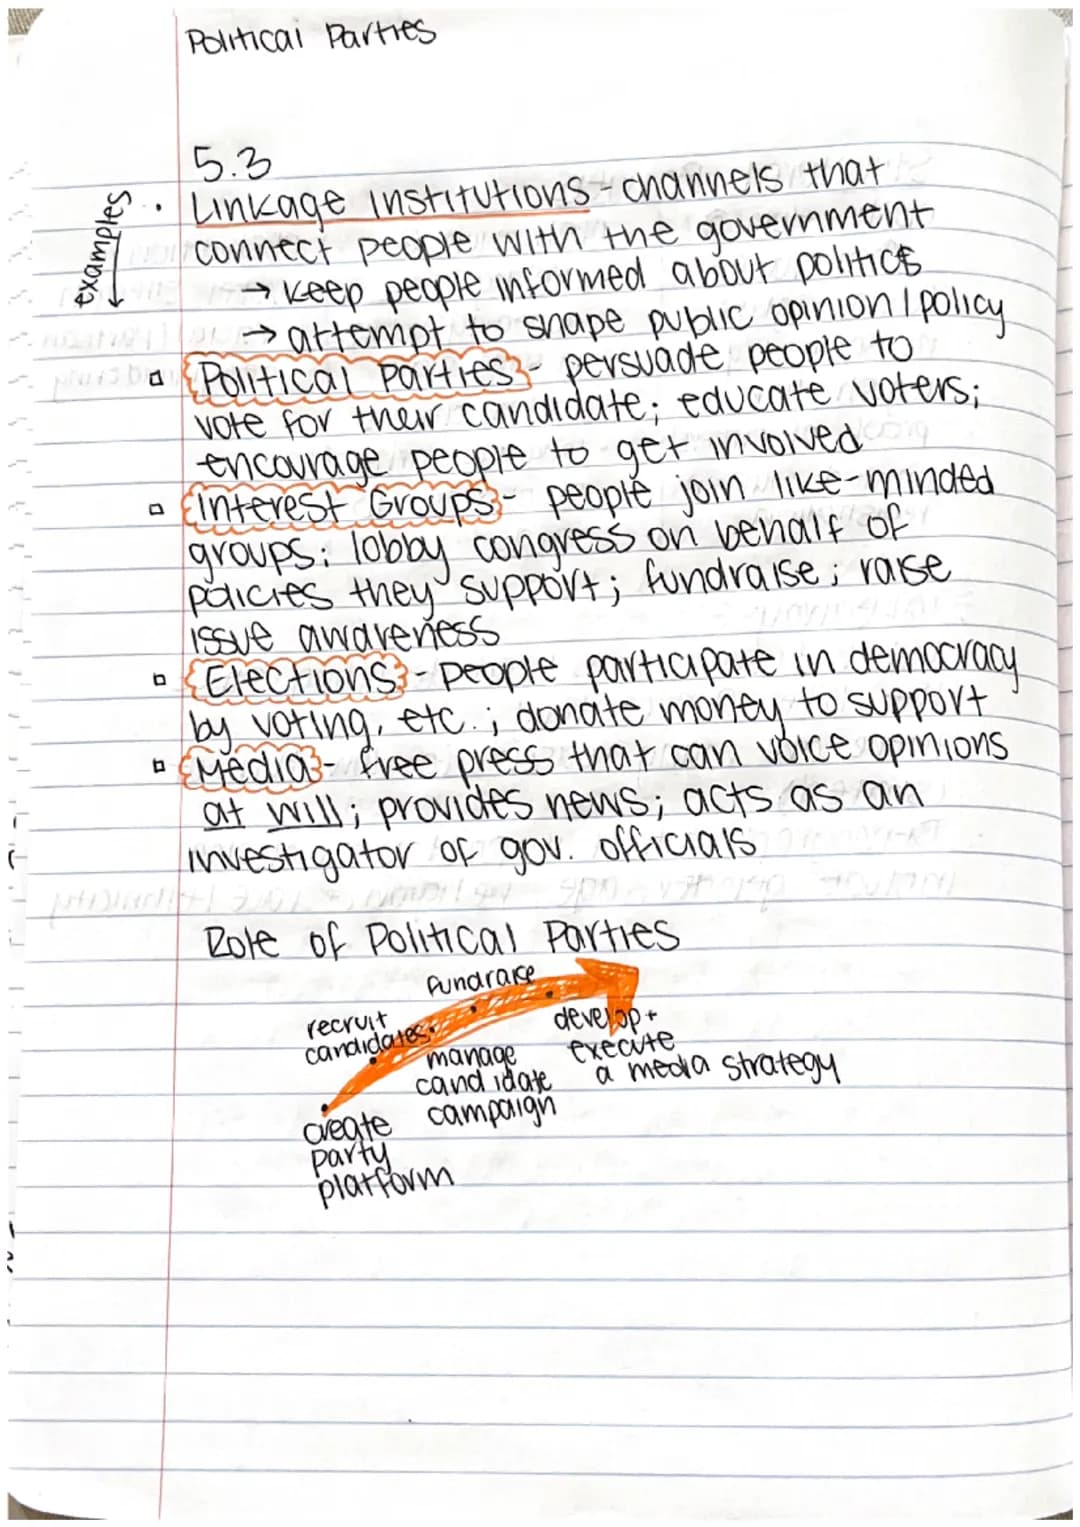 Political Parties
5.3
examples
• Linkage institutions - channels that
connect people with the government
→ keep people informed about politics
→ attempt to shape public opinion / policy
▫ Political Parties - persuade people to
vote for their candidate; educate voters;
encourage people to get involved
▫ Interest Groups - people join like-minded
groups; lobby congress on behalf of
policies they support; fundraise; raise
issue awareness
▫ Elections - people participate in democracy
by voting, etc.; donate money to support
▫ Media - free press that can voice opinions
at will; provides news; acts as an
investigator of gov. officials
Role of Political Parties
create
party
platform
recruit
candidates
manage
candidate
campaign
fundraise
develop +
execute
a media strategy